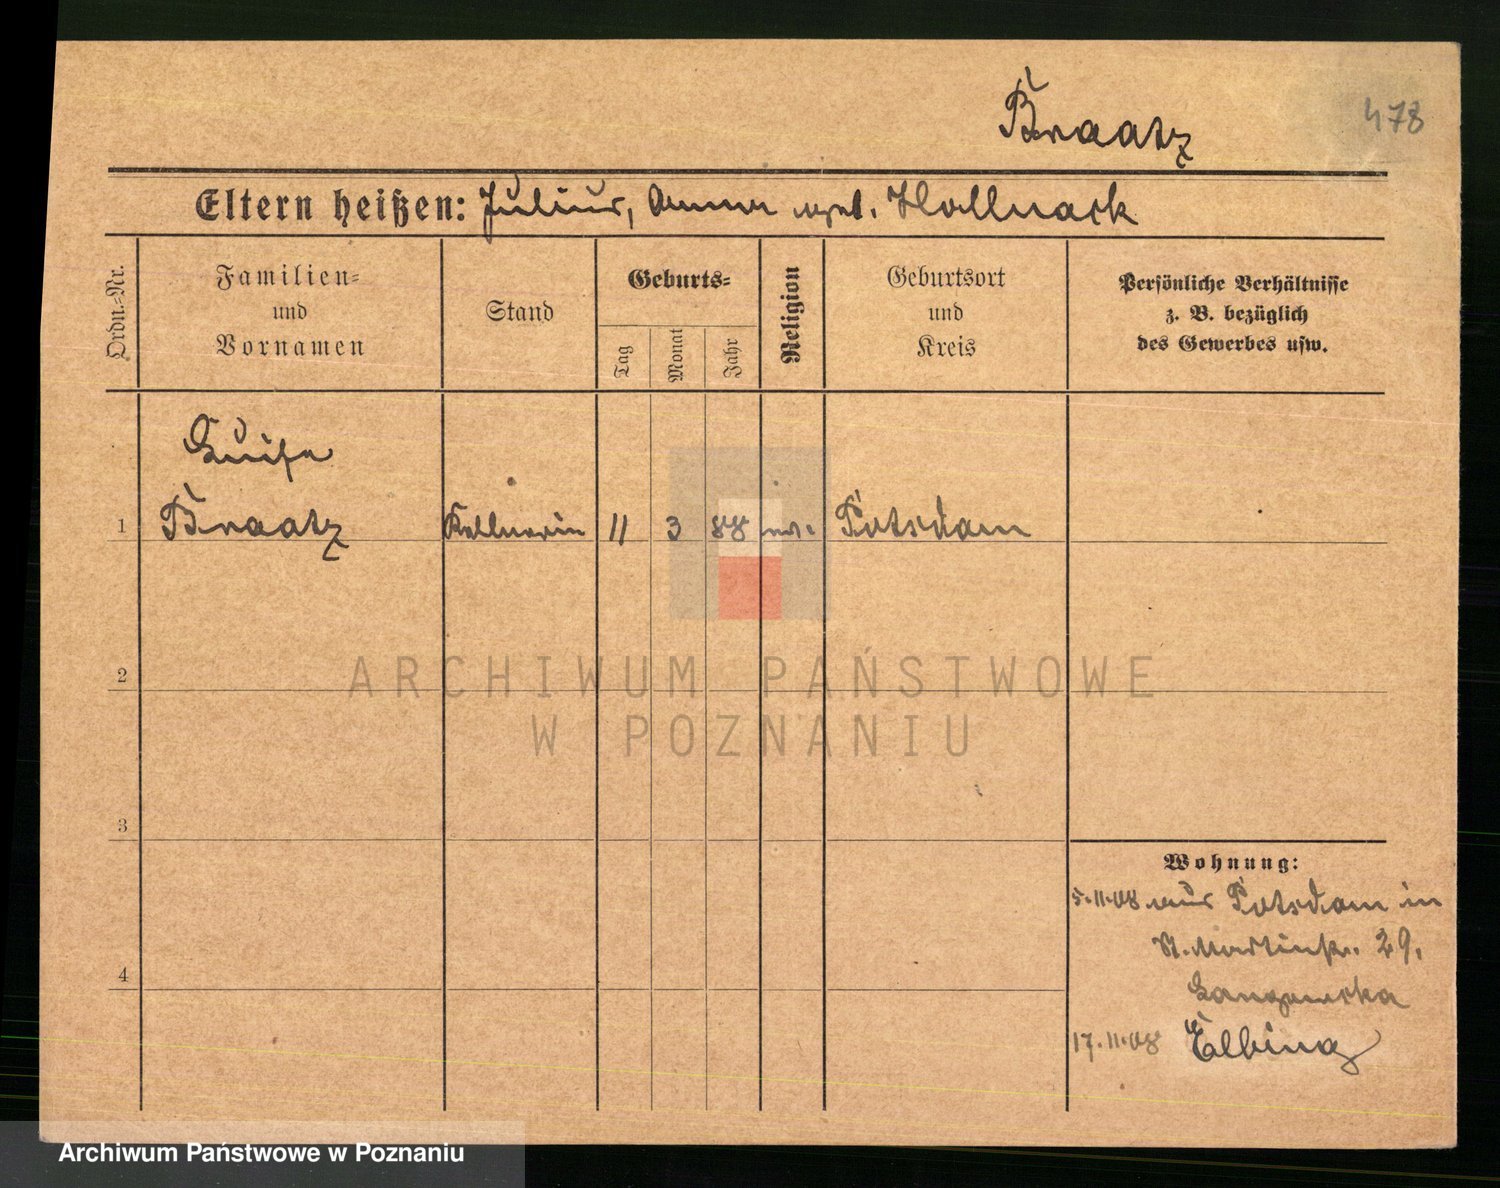 Braatz
478
Eltern heißen: Julius, Anna geb. Hollnack
Ordn.-Nr.
Familien-
und
Vornamen
Stand
Geburts-
Tag
Monat
Jahr
Religion
Geburtsort
und
Kreis
Persönliche Verhältnisse
z. B. bezüglich
des Gewerbes usw.
Luise
1 Braatz Kellnerin 11 3 88 ev. Potsdam
2
ARCHIWUM PAŃSTWOWE
W POZNANIU
3
Wohnung:
5.11.08 aus Potsdam in
St. Martinstr. 29.
4
17.11.08 Elbing
Archiwum Państwowe w Poznaniu